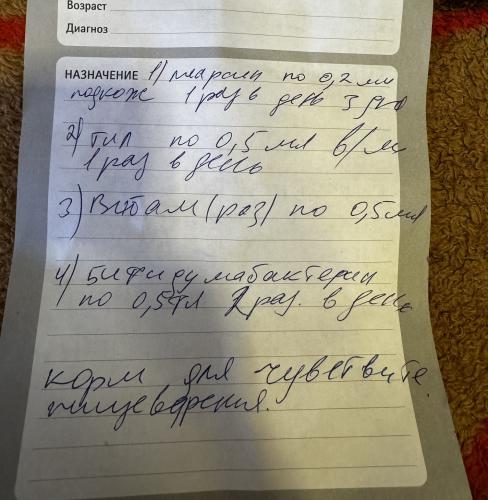 Возраст
Диагноз
НАЗНАЧЕНИЕ 1) по 0,2 мл
подкож 1 раз в день 3 дня
2) тил по 0,5 мл в/м
1 раз в день
3) Витам (раз) по 0,5 мл
4) Бифидумабактерин
по 0,5 раз. в день
корм для чувствите
пищеварения.